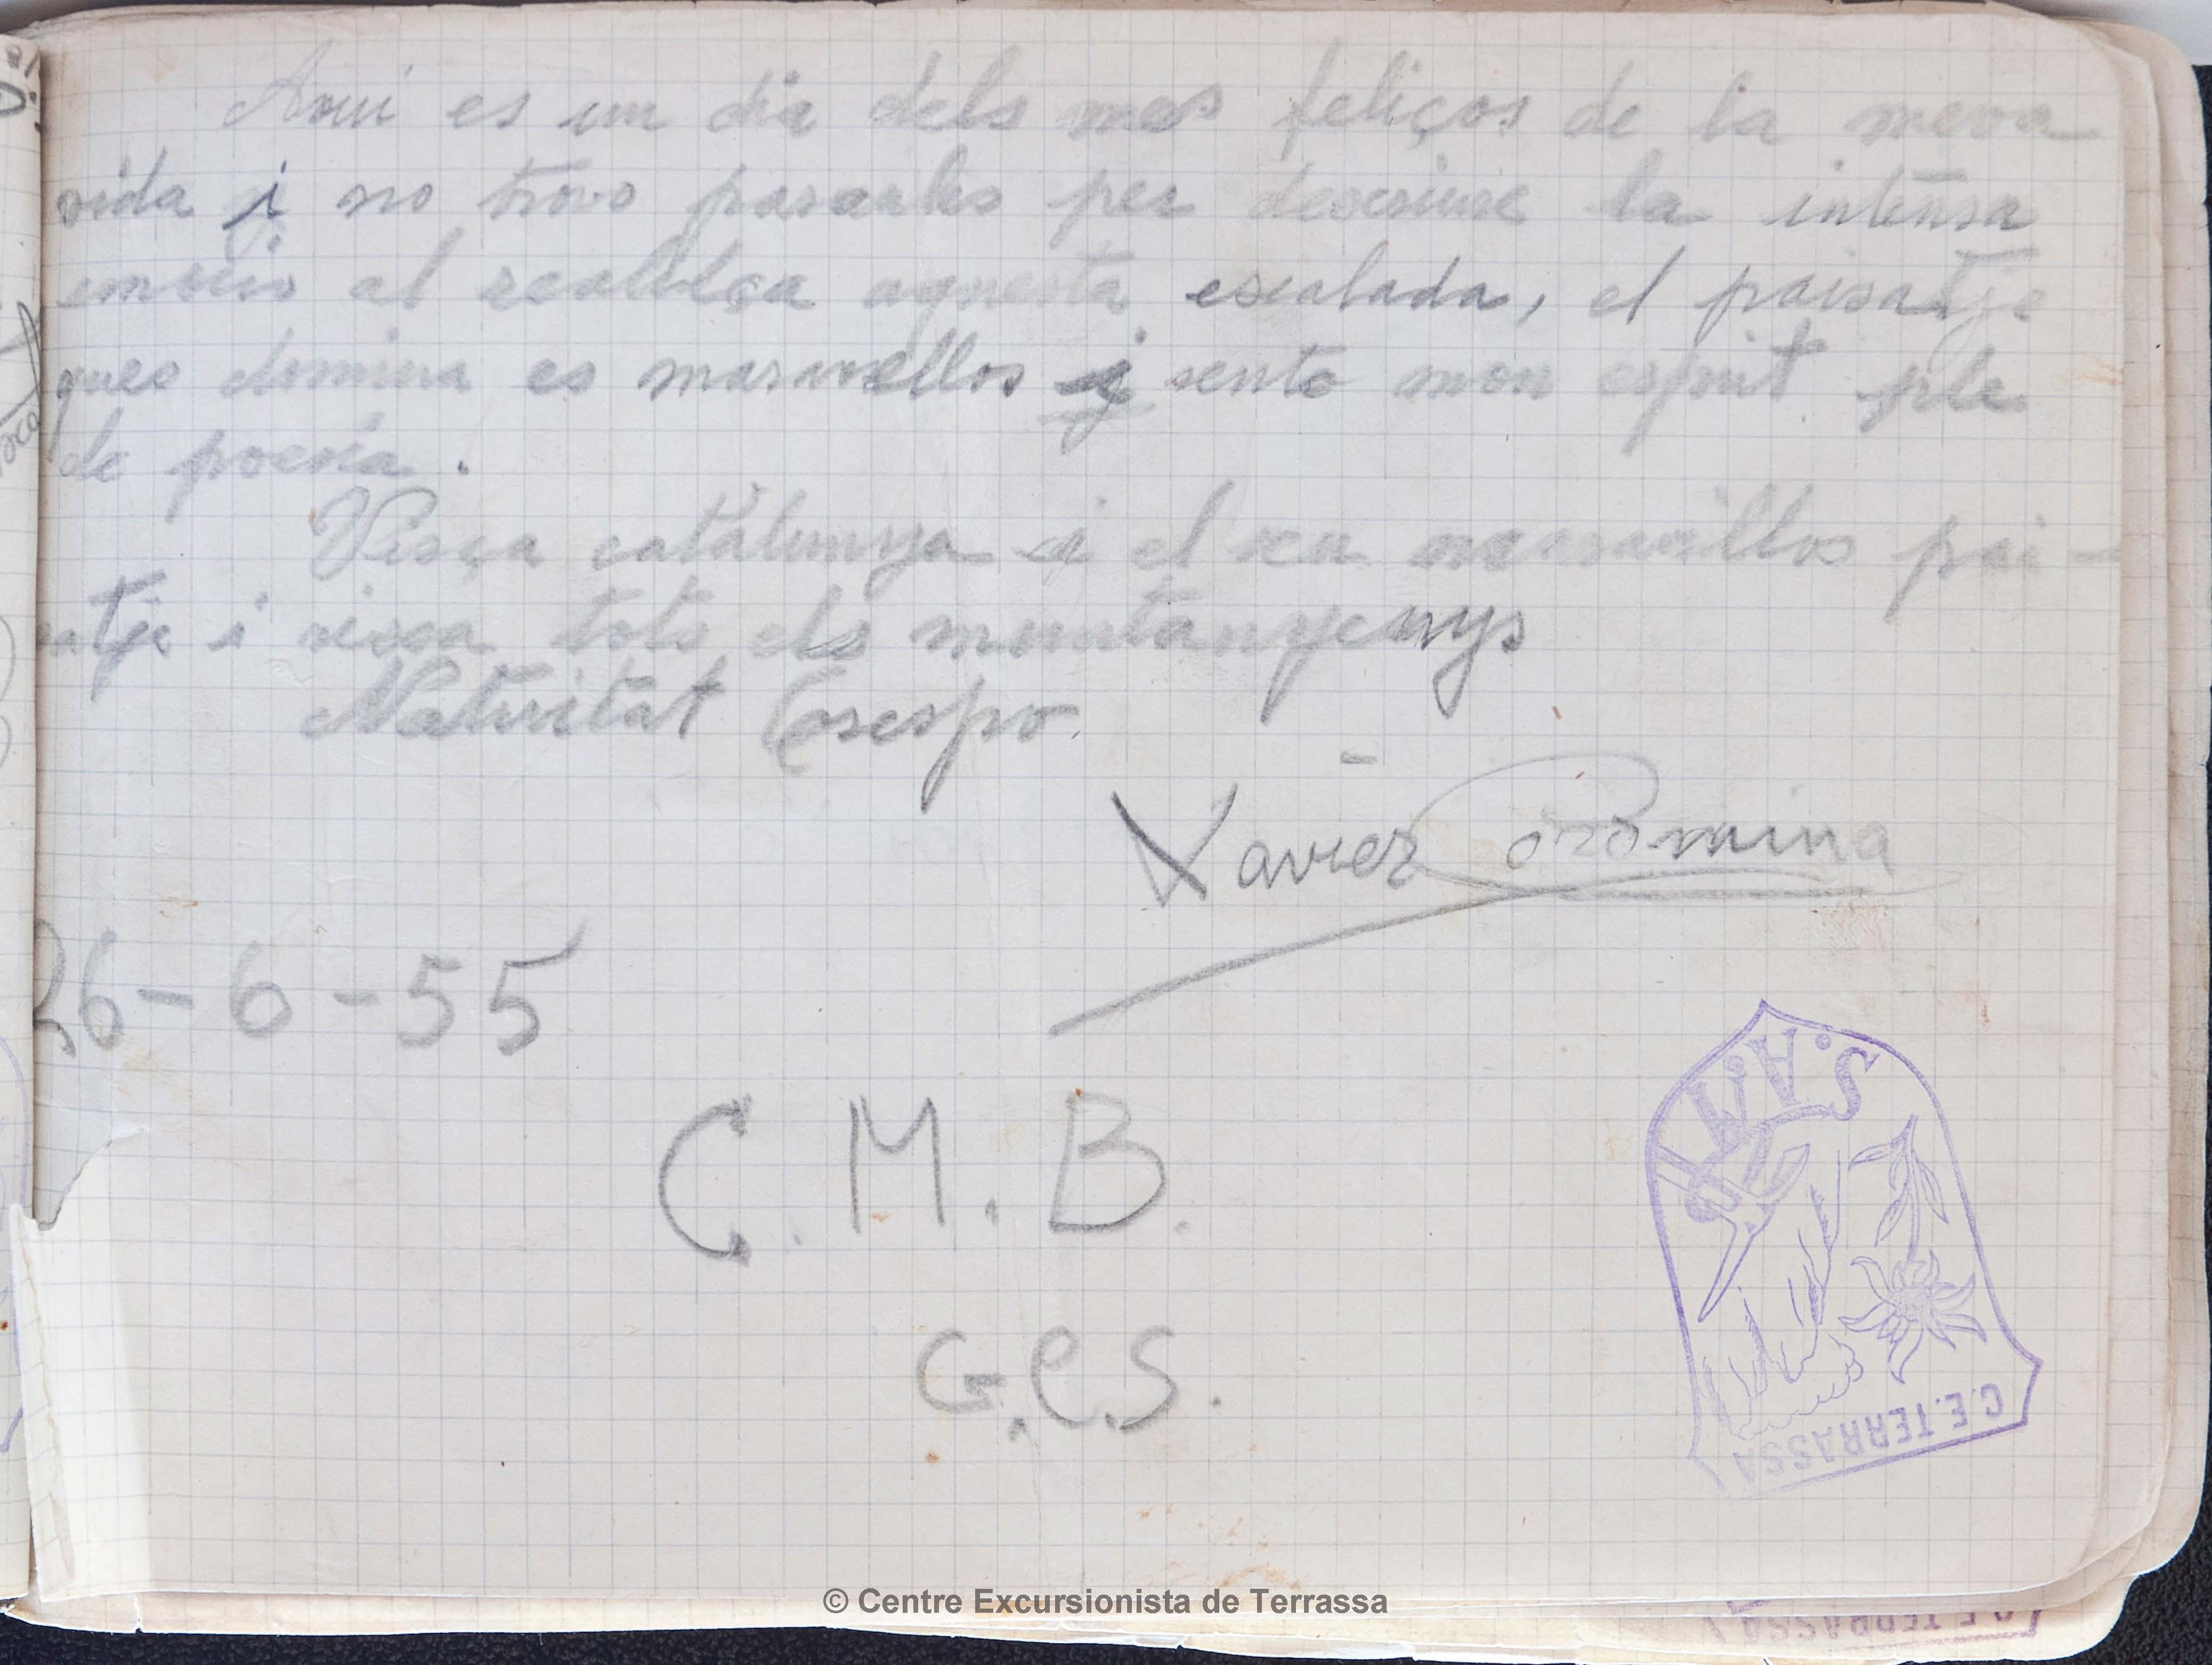 Avui es un dia dels mes feliços de la meva
vida i no trovo paraules per descriure la intensa
emocio al realitça aquesta escalada, el paisatje
ques domina es maravellos i sento mon esprit ple
de poesia.
Visca catalunya i el seu maravillos pai-
satje i visca tots els muntanyenys
Nativitat Crespo.
Xavier Coromina
26-6-55
C.M.B.
G.E.S.
S.A.M.
C.E. TERRASSA
© Centre Excursionista de Terrassa
C.E. TERRASSA